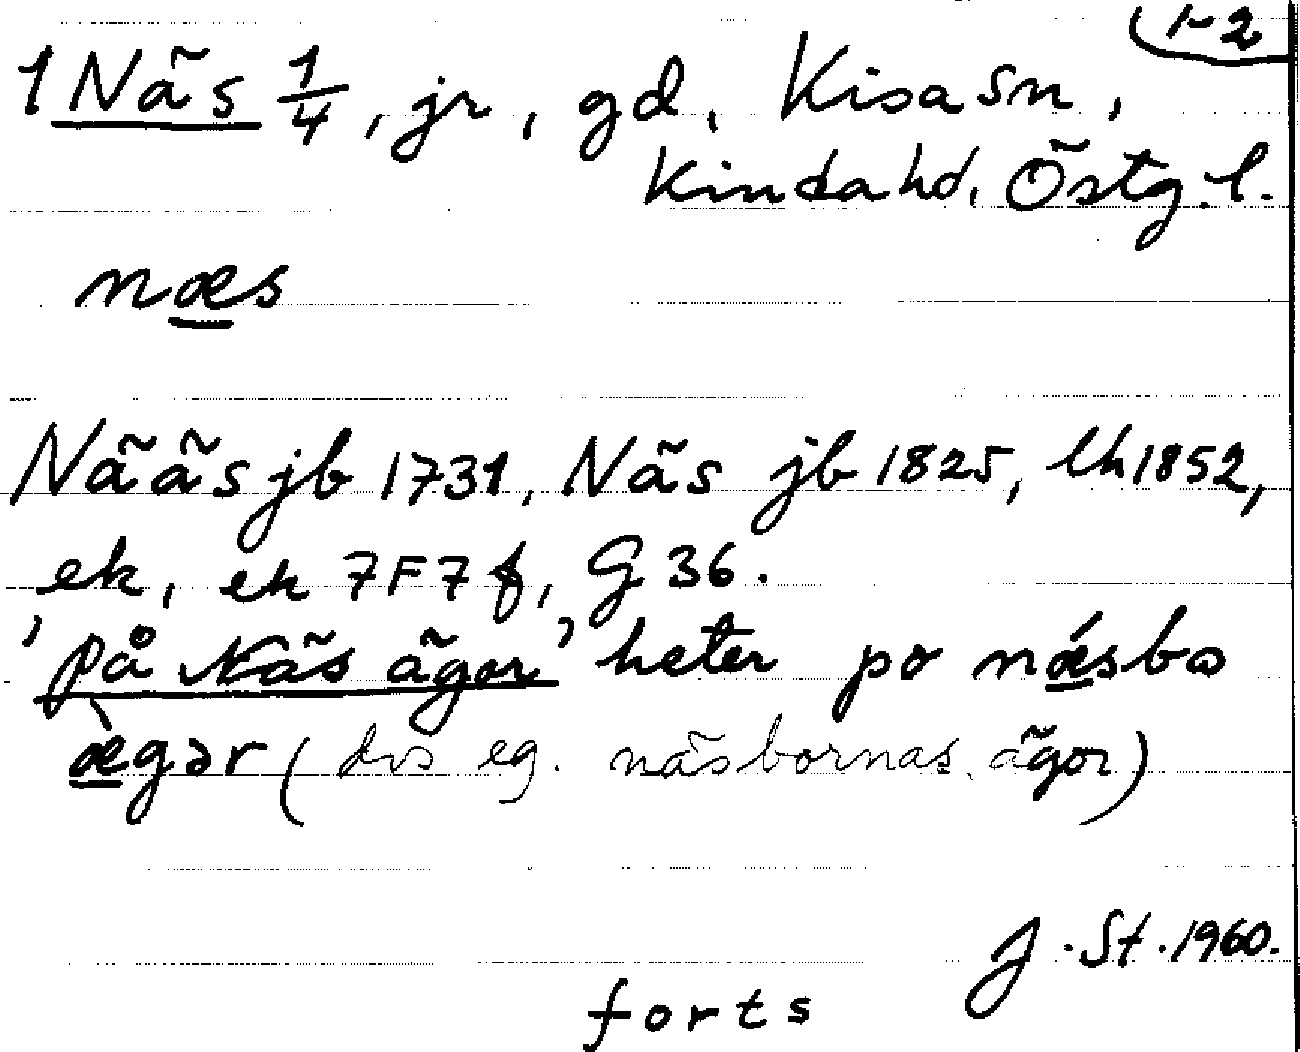 1-2
1 Näs 1/4, jr, gd, Kisa sn,
Kinda hd, Östg. l.
næs
Nääs jb 1731, Näs jb 1825, lh 1852,
ek, eh 7F7f, G 36.
'på Näs ägor' heter po næ´sbo
æ`gər (dvs eg. näsbornas ägor)
J. St. 1960.
forts